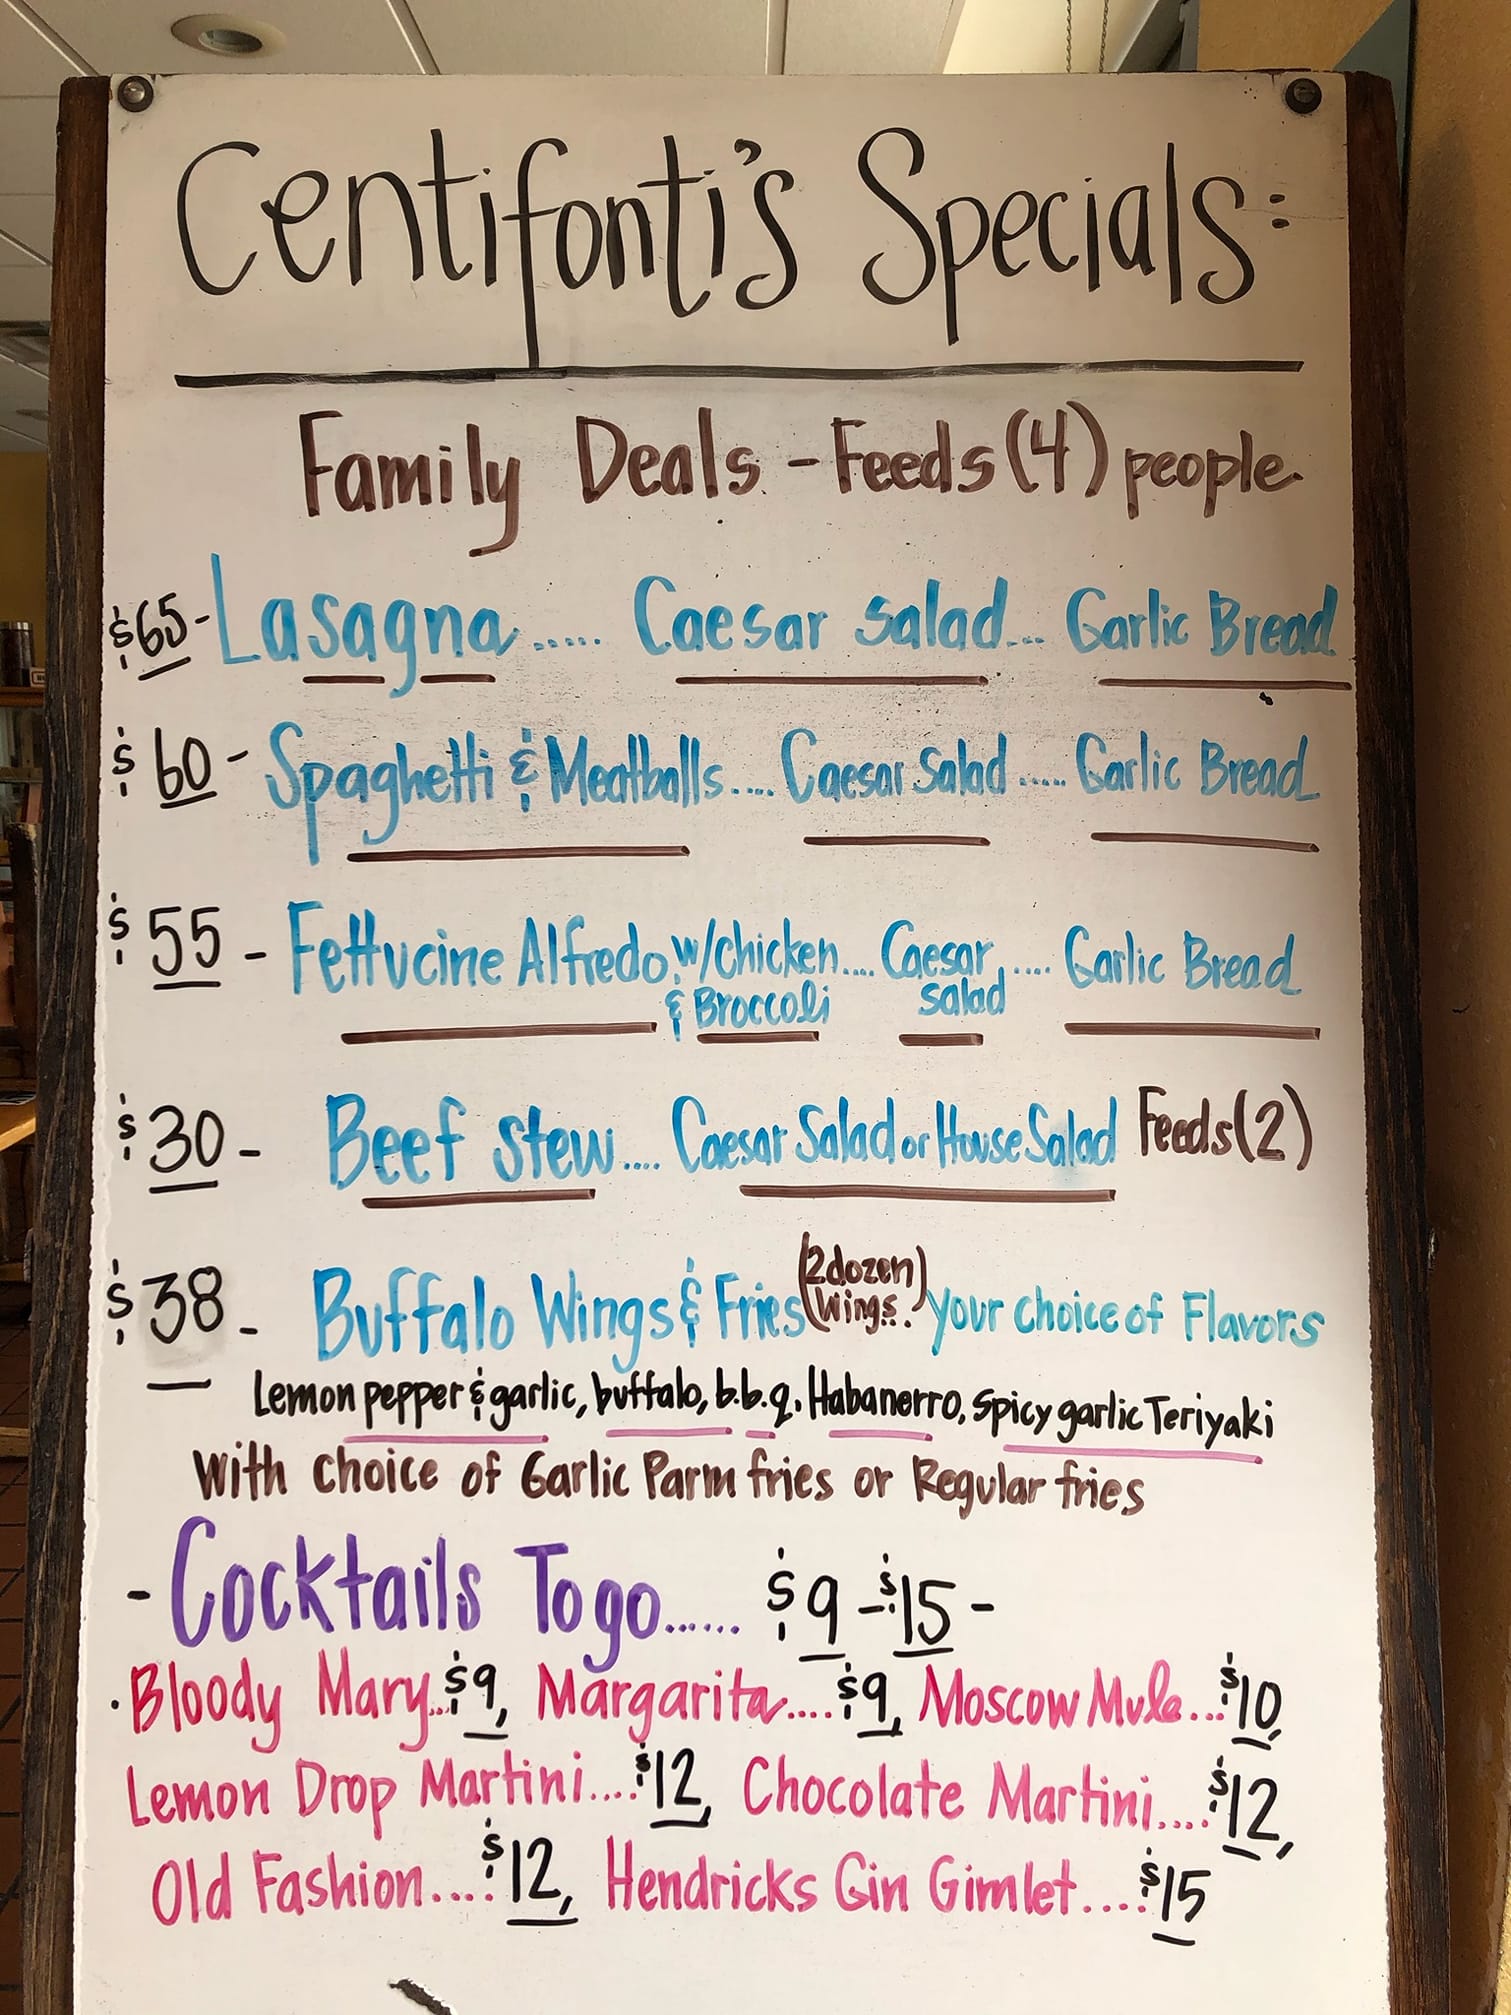 Centifonti's Specials:
Family Deals - Feeds (4) people
$65 - Lasagna ..... Caesar salad ... Garlic Bread
$60 - Spaghetti & Meatballs .... Caesar Salad ..... Garlic Bread
$55 - Fettucine Alfredo, w/chicken .... Caesar ..... Garlic Bread
& Broccoli salad
$30 - Beef stew .... Caesar Salad or House Salad Feeds (2)
$38 - Buffalo Wings & Fries (2 dozen wings.) your choice of Flavors
Lemon pepper & garlic, buffalo, b.b.q. Habanerro, spicy garlic Teriyaki
with choice of Garlic Parm fries or Regular fries
- Cocktails To go ...... $9 - $15 -
. Bloody Mary... $9, Margarita .... $9, Moscow Mule ... $10,
Lemon Drop Martini .... $12, Chocolate Martini .... $12,
Old Fashion .... $12, Hendricks Gin Gimlet .... $15